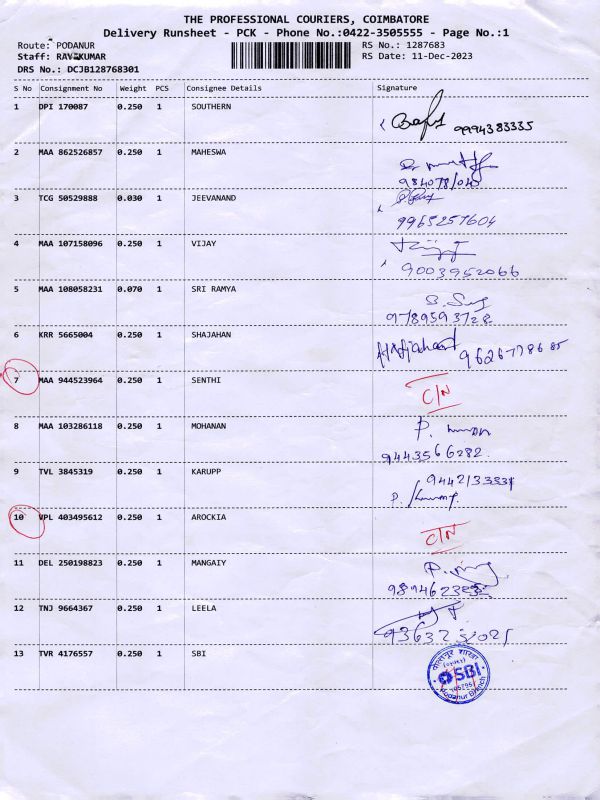 THE PROFESSIONAL COURIERS, COIMBATORE
Delivery Runsheet - PCK - Phone No.:0422-3505555 - Page No.:1
Route: PODANUR
RS No.: 1287683
Staff: RAVIKUMAR
RS Date: 11-Dec-2023
DRS No.: DCJB128768301
S No Consignment No Weight PCS Consignee Details Signature
1 DPI 170087 0.250 1 SOUTHERN
9994383335
2 MAA 862526857 0.250 1 MAHESWA
3 TCG 50529888 0.030 1 JEEVANAND
9965257604
4 MAA 107158096 0.250 1 VIJAY
9003952066
5 MAA 108058231 0.070 1 SRI RAMYA
9789593728
6 KRR 5665004 0.250 1 SHAJAHAN
9626778685
7 MAA 944523964 0.250 1 SENTHI C/N
8 MAA 103286118 0.250 1 MOHANAN
9443566282
9 TVL 3845319 0.250 1 KARUPP
10 VPL 403495612 0.250 1 AROCKIA C/N
11 DEL 250198823 0.250 1 MANGAIY
12 TNJ 9664367 0.250 1 LEELA
13 TVR 4176557 0.250 1 SBI
SBI
Branch